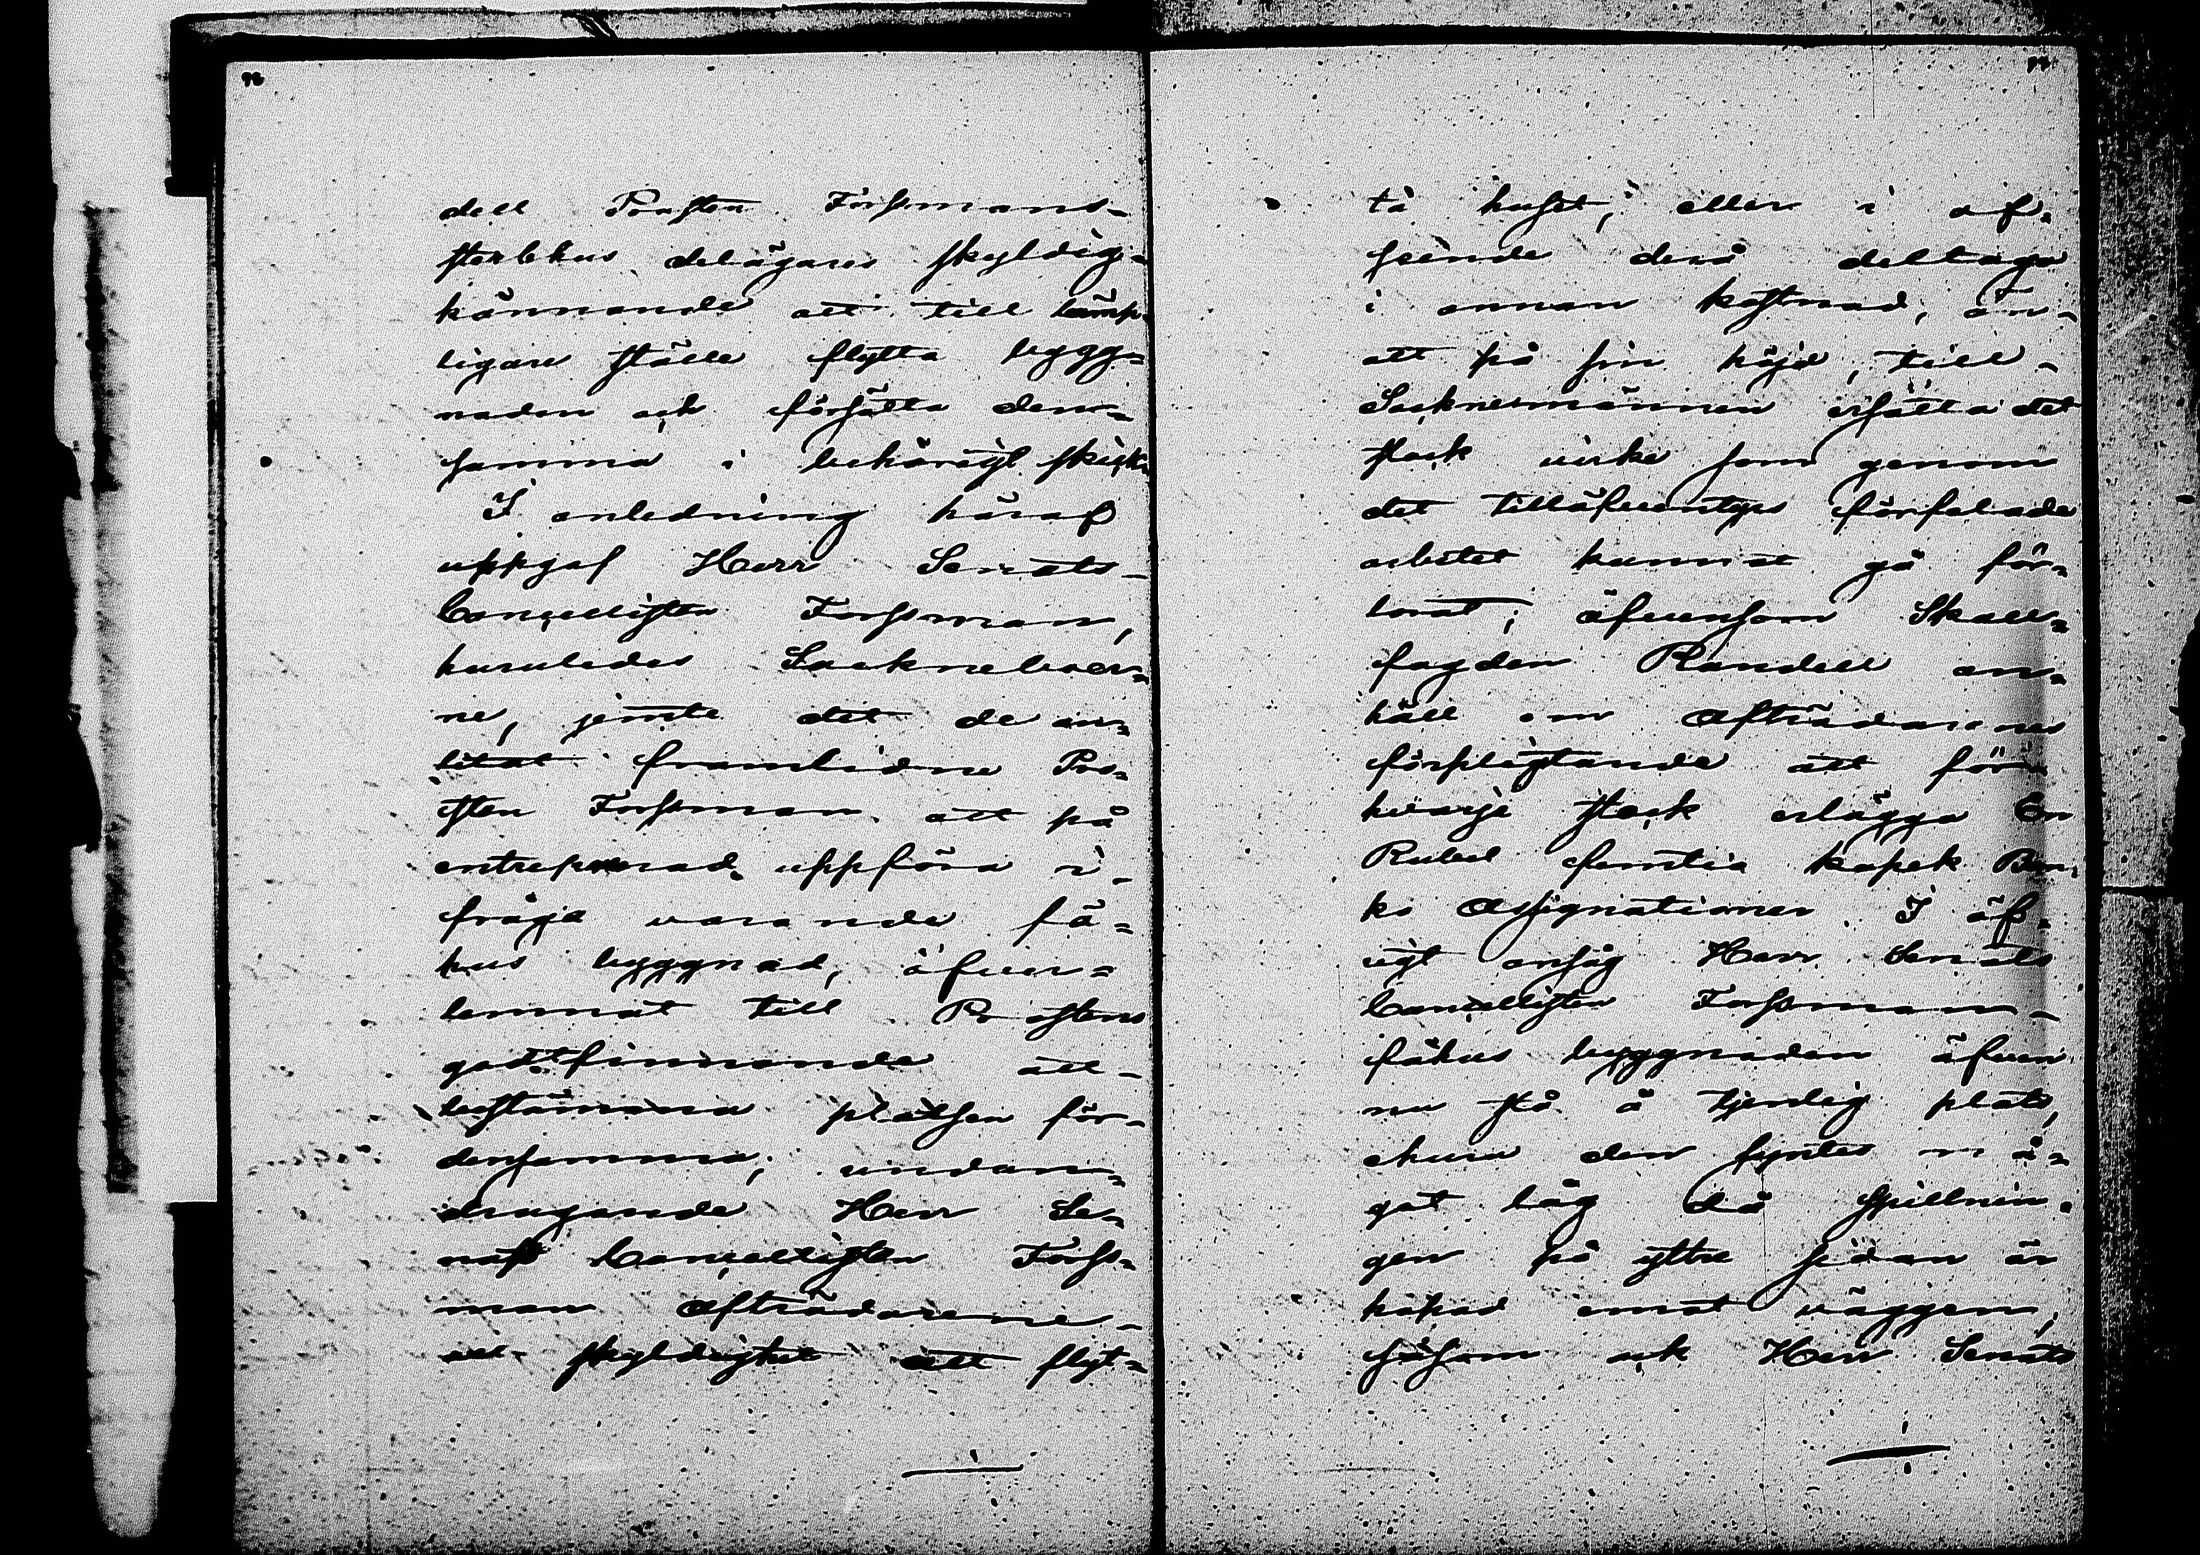 dell Prosten Forssmans-
sterbhus delägares skyldig-
kännande att till lämp-
ligare ställe flytta bygg-
naden och försätta den-
samma i behörigt skick
I anledning häraf
uppgaf Herr Senats-
Cancellisten Forssman,
huruledes Sockneboer-
ne, jemte det de an-
litat framlidne Pro-
sten Forssman att på
entreprenad uppföra i-
fråga varande fä-
hus byggnad, äfven-
lemnat till Prostens
godtfinnande att-
bestämma platsen för-
densamma, undan-
dragande Herr Se-
nats Cancellisten Forss-
man afträdarene-
all skyldighet att flyt-
ta huset, eller i af-
seende derå deltaga
i annan kostnad, än-
att på sin höjd, till-
Socknemännen ersätta det
stock virke som genom
det tilläfventyrs förfelade
arbetet kunnat gå för-
lorat; äfvensom Skall-
fogden Randell an-
höll om afträdarenes
förpligtande att för
hvarje stock erlägga En
Rubel femtio kopek Ban-
ko Assignationer. I öf-
rigt ansåg Herr Senats
Cancellisten Forssman-
fähus byggnaden äfven
nu stå å tjenlig plats,
ehuru den syntes nå-
got låg då spillnin-
gen på yttre sidan är
hopad emot väggen,
såsom ock Herr Senats